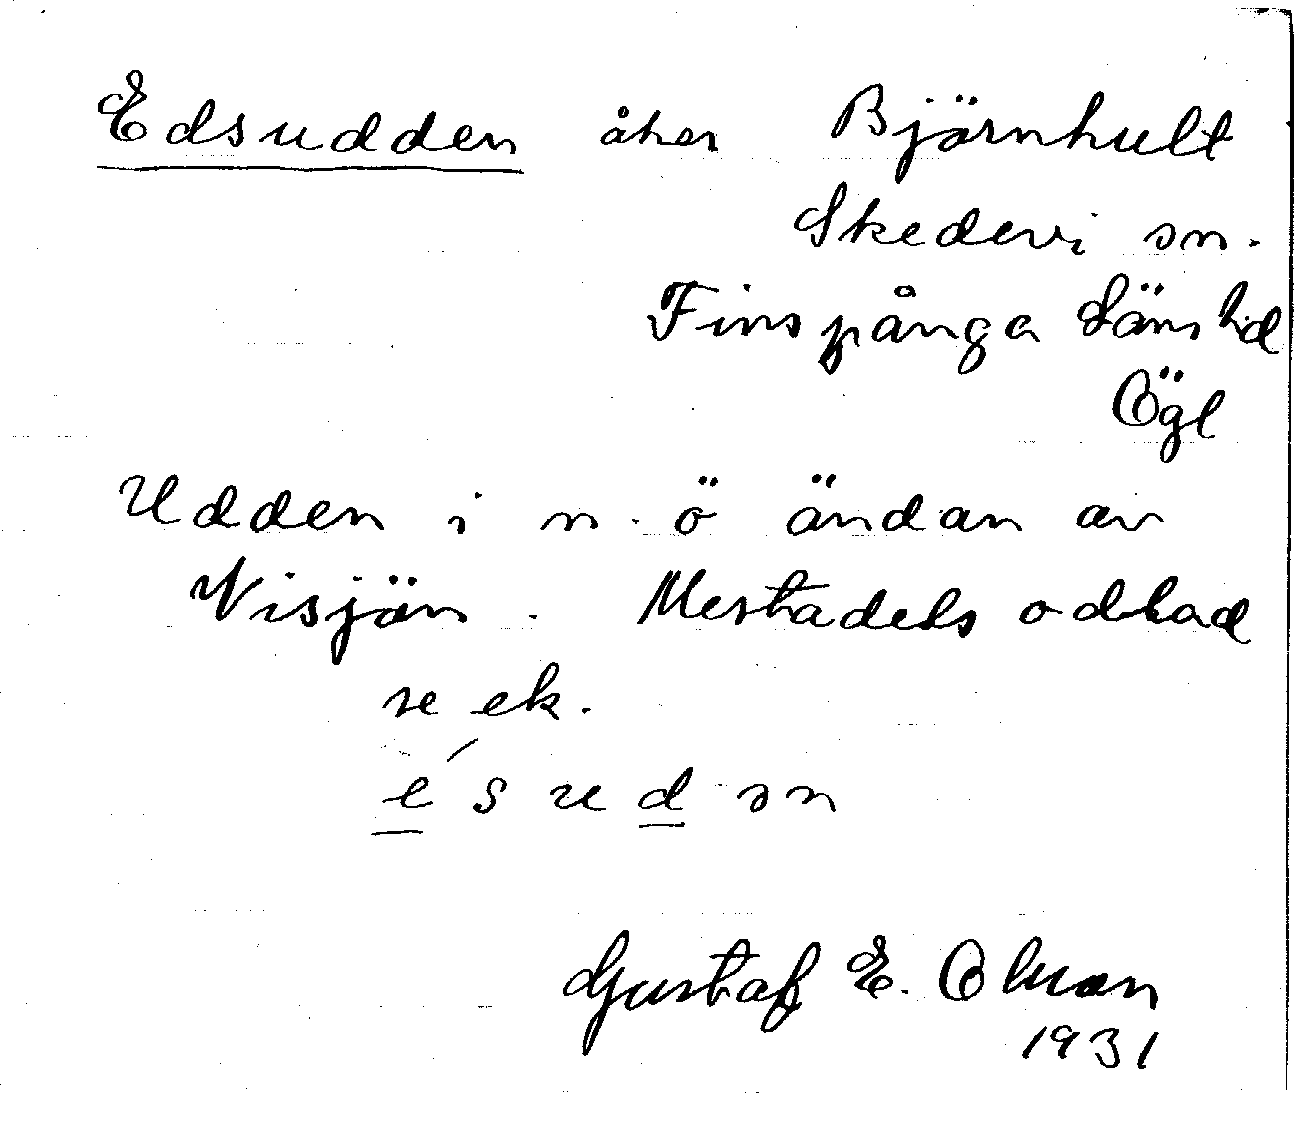 Edsudden åker Björnhult
Skedevi sn.
Finspånga Läns hd
Ögl
Udden i n. ö ändan av
Visjön. Mestadels odlad
se ek.
é s u d ə n
Gustaf E. Olson
1931